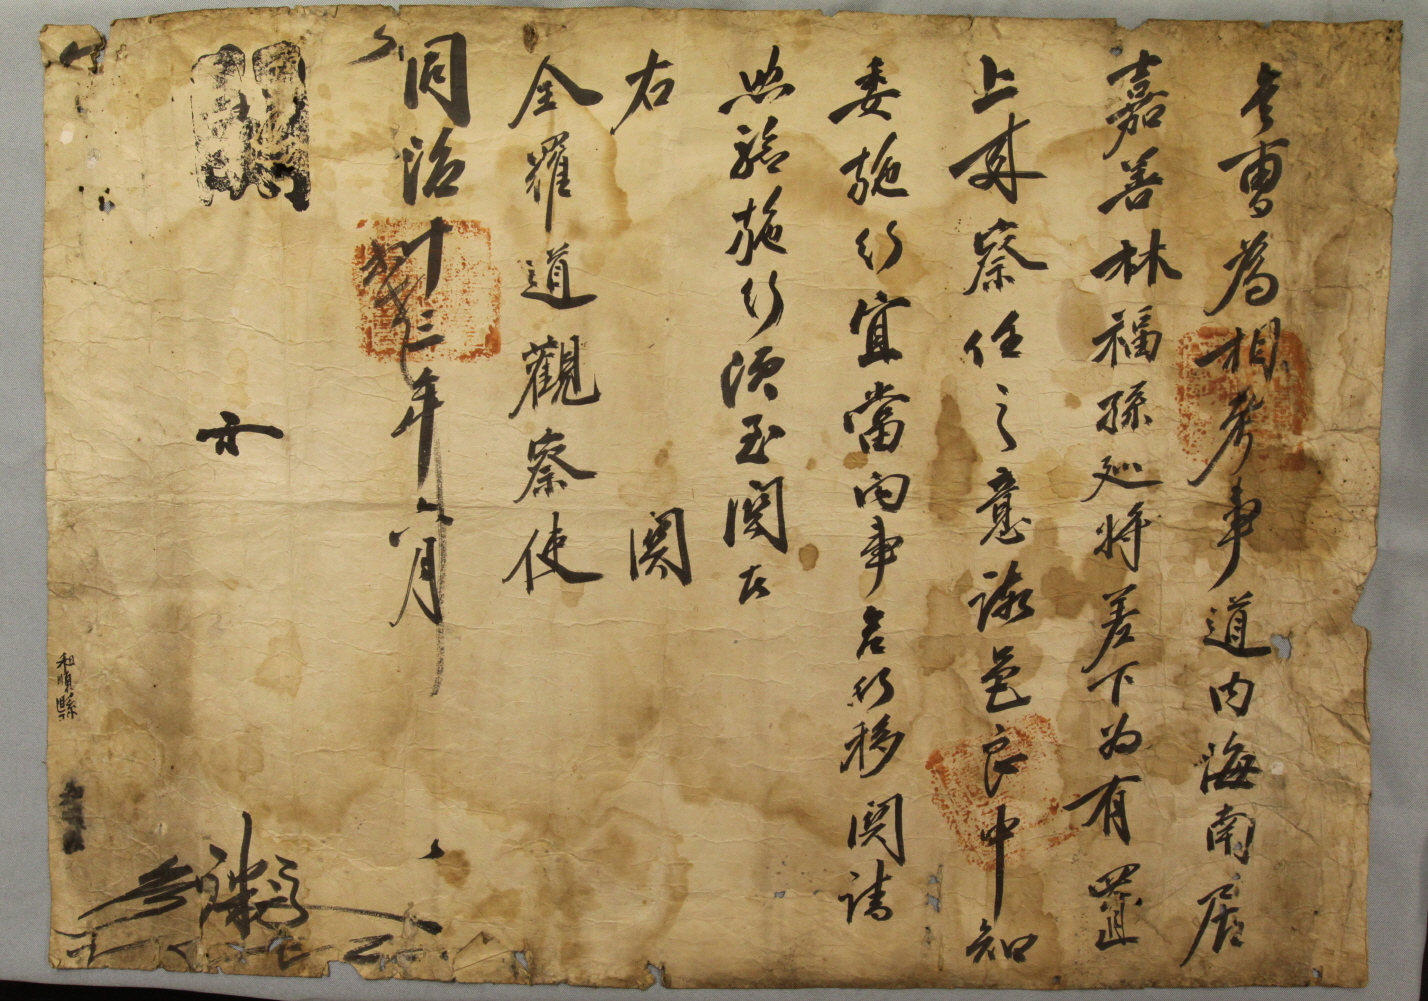 兵曹爲相考事道内海南居
嘉善林福孫巡將差下为有置
上來察任之意該邑良中知
委施行宜當向事合行移關請
照驗施行須至關者
右 關
全羅道觀察使
同治十三年六月
和順縣